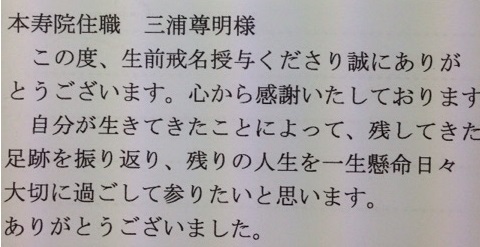 本寿院住職　三浦尊明様
　この度、生前戒名授与くださり誠にありが
とうございます。心から感謝いたしております
　自分が生きてきたことによって、残してきた
足跡を振り返り、残りの人生を一生懸命日々
大切に過ごして参りたいと思います。
ありがとうございました。